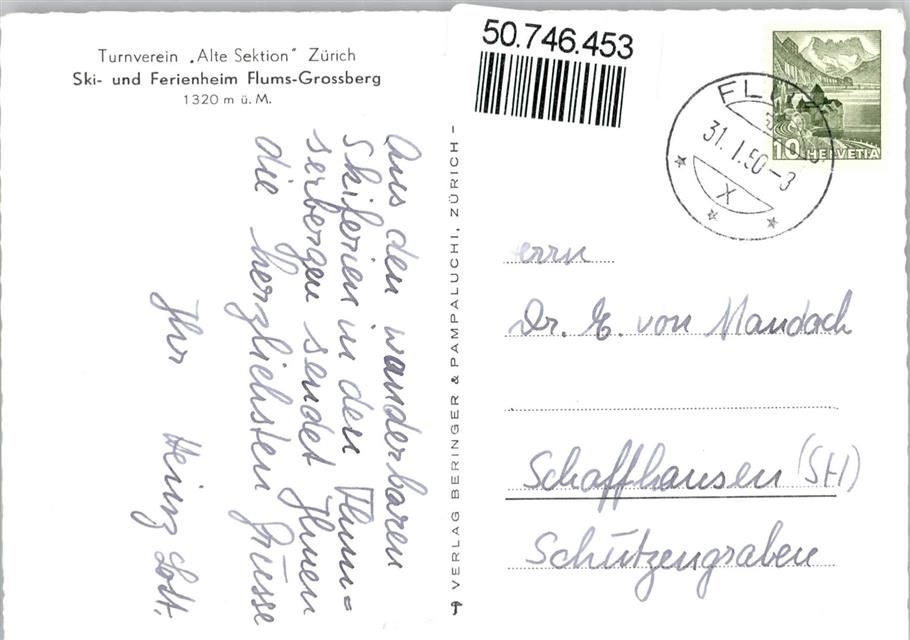 Turnverein „Alte Sektion" Zürich
Ski- und Ferienheim Flums-Grossberg
1320 m ü. M.
Aus den wunderbaren
Skiferien in den Flum=
serbergen sendet Ihnen
die herzlichsten Grüsse
Ihr Heinz
VERLAG BERINGER & PAMPALUCHI, ZÜRICH
50.746.453
31. I. 50 - 3
X
10 HELVETIA
Herrn
Dr. E. von Mandach
Schaffhausen (SH)
Schützengraben